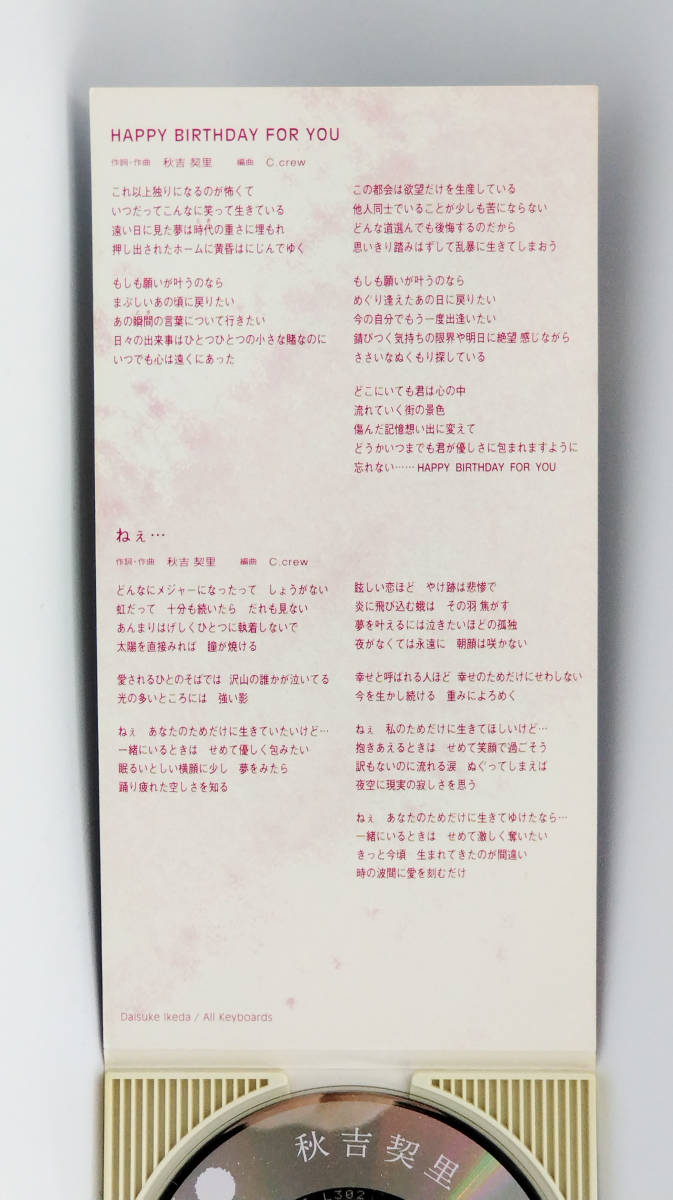 HAPPY BIRTHDAY FOR YOU
作詞・作曲 秋吉 契里 編曲 C.crew
これ以上独りになるのが怖くて
いつだってこんなに笑って生きている
遠い日に見た夢は時代の重さに埋もれ
押し出されたホームに黄昏はにじんでゆく
もしも願いが叶うのなら
まぶしいあの頃に戻りたい
あの瞬間の言葉について行きたい
日々の出来事はひとつひとつの小さな賭なのに
いつでも心は遠くにあった
この都会は欲望だけを生産している
他人同士でいることが少しも苦にならない
どんな道選んでも後悔するのだから
思いきり踏みはずして乱暴に生きてしまおう
もしも願いが叶うのなら
めぐり逢えたあの日に戻りたい
今の自分でもう一度出逢いたい
錆びつく気持ちの限界や明日に絶望 感じながら
ささいなぬくもり探している
どこにいても君は心の中
流れていく街の景色
傷んだ記憶想い出に変えて
どうかいつまでも君が優しさに包まれますように
忘れない……HAPPY BIRTHDAY FOR YOU
ねぇ…
作詞・作曲 秋吉 契里 編曲 C.crew
どんなにメジャーになったって しょうがない
虹だって 十分も続いたら だれも見ない
あんまりはげしくひとつに執着しないで
太陽を直接みれば 瞳が焼ける
愛されるひとのそばでは 沢山の誰かが泣いてる
光の多いところには 強い影
ねぇ あなたのためだけに生きていたいけど…
一緒にいるときは せめて優しく包みたい
眠るいとしい横顔に少し 夢をみたら
踊り疲れた空しさを知る
眩しい恋ほど やけ跡は悲惨で
炎に飛び込む蛾は その羽 焦がす
夢を叶えるには泣きたいほどの孤独
夜がなくては永遠に 朝顔は咲かない
幸せと呼ばれる人ほど 幸せのためだけにせわしない
今を生かし続ける 重みによろめく
ねぇ 私のためだけに生きてほしいけど…
抱きあえるときは せめて笑顔で過ごそう
訳もないのに流れる涙 ぬぐってしまえば
夜空に現実の寂しさを思う
ねぇ あなたのためだけに生きてゆけたなら…
一緒にいるときは せめて激しく奪いたい
きっと今頃 生まれてきたのが間違い
時の波間に愛を刻むだけ
Daisuke Ikeda / All Keyboards
秋吉契里
L302